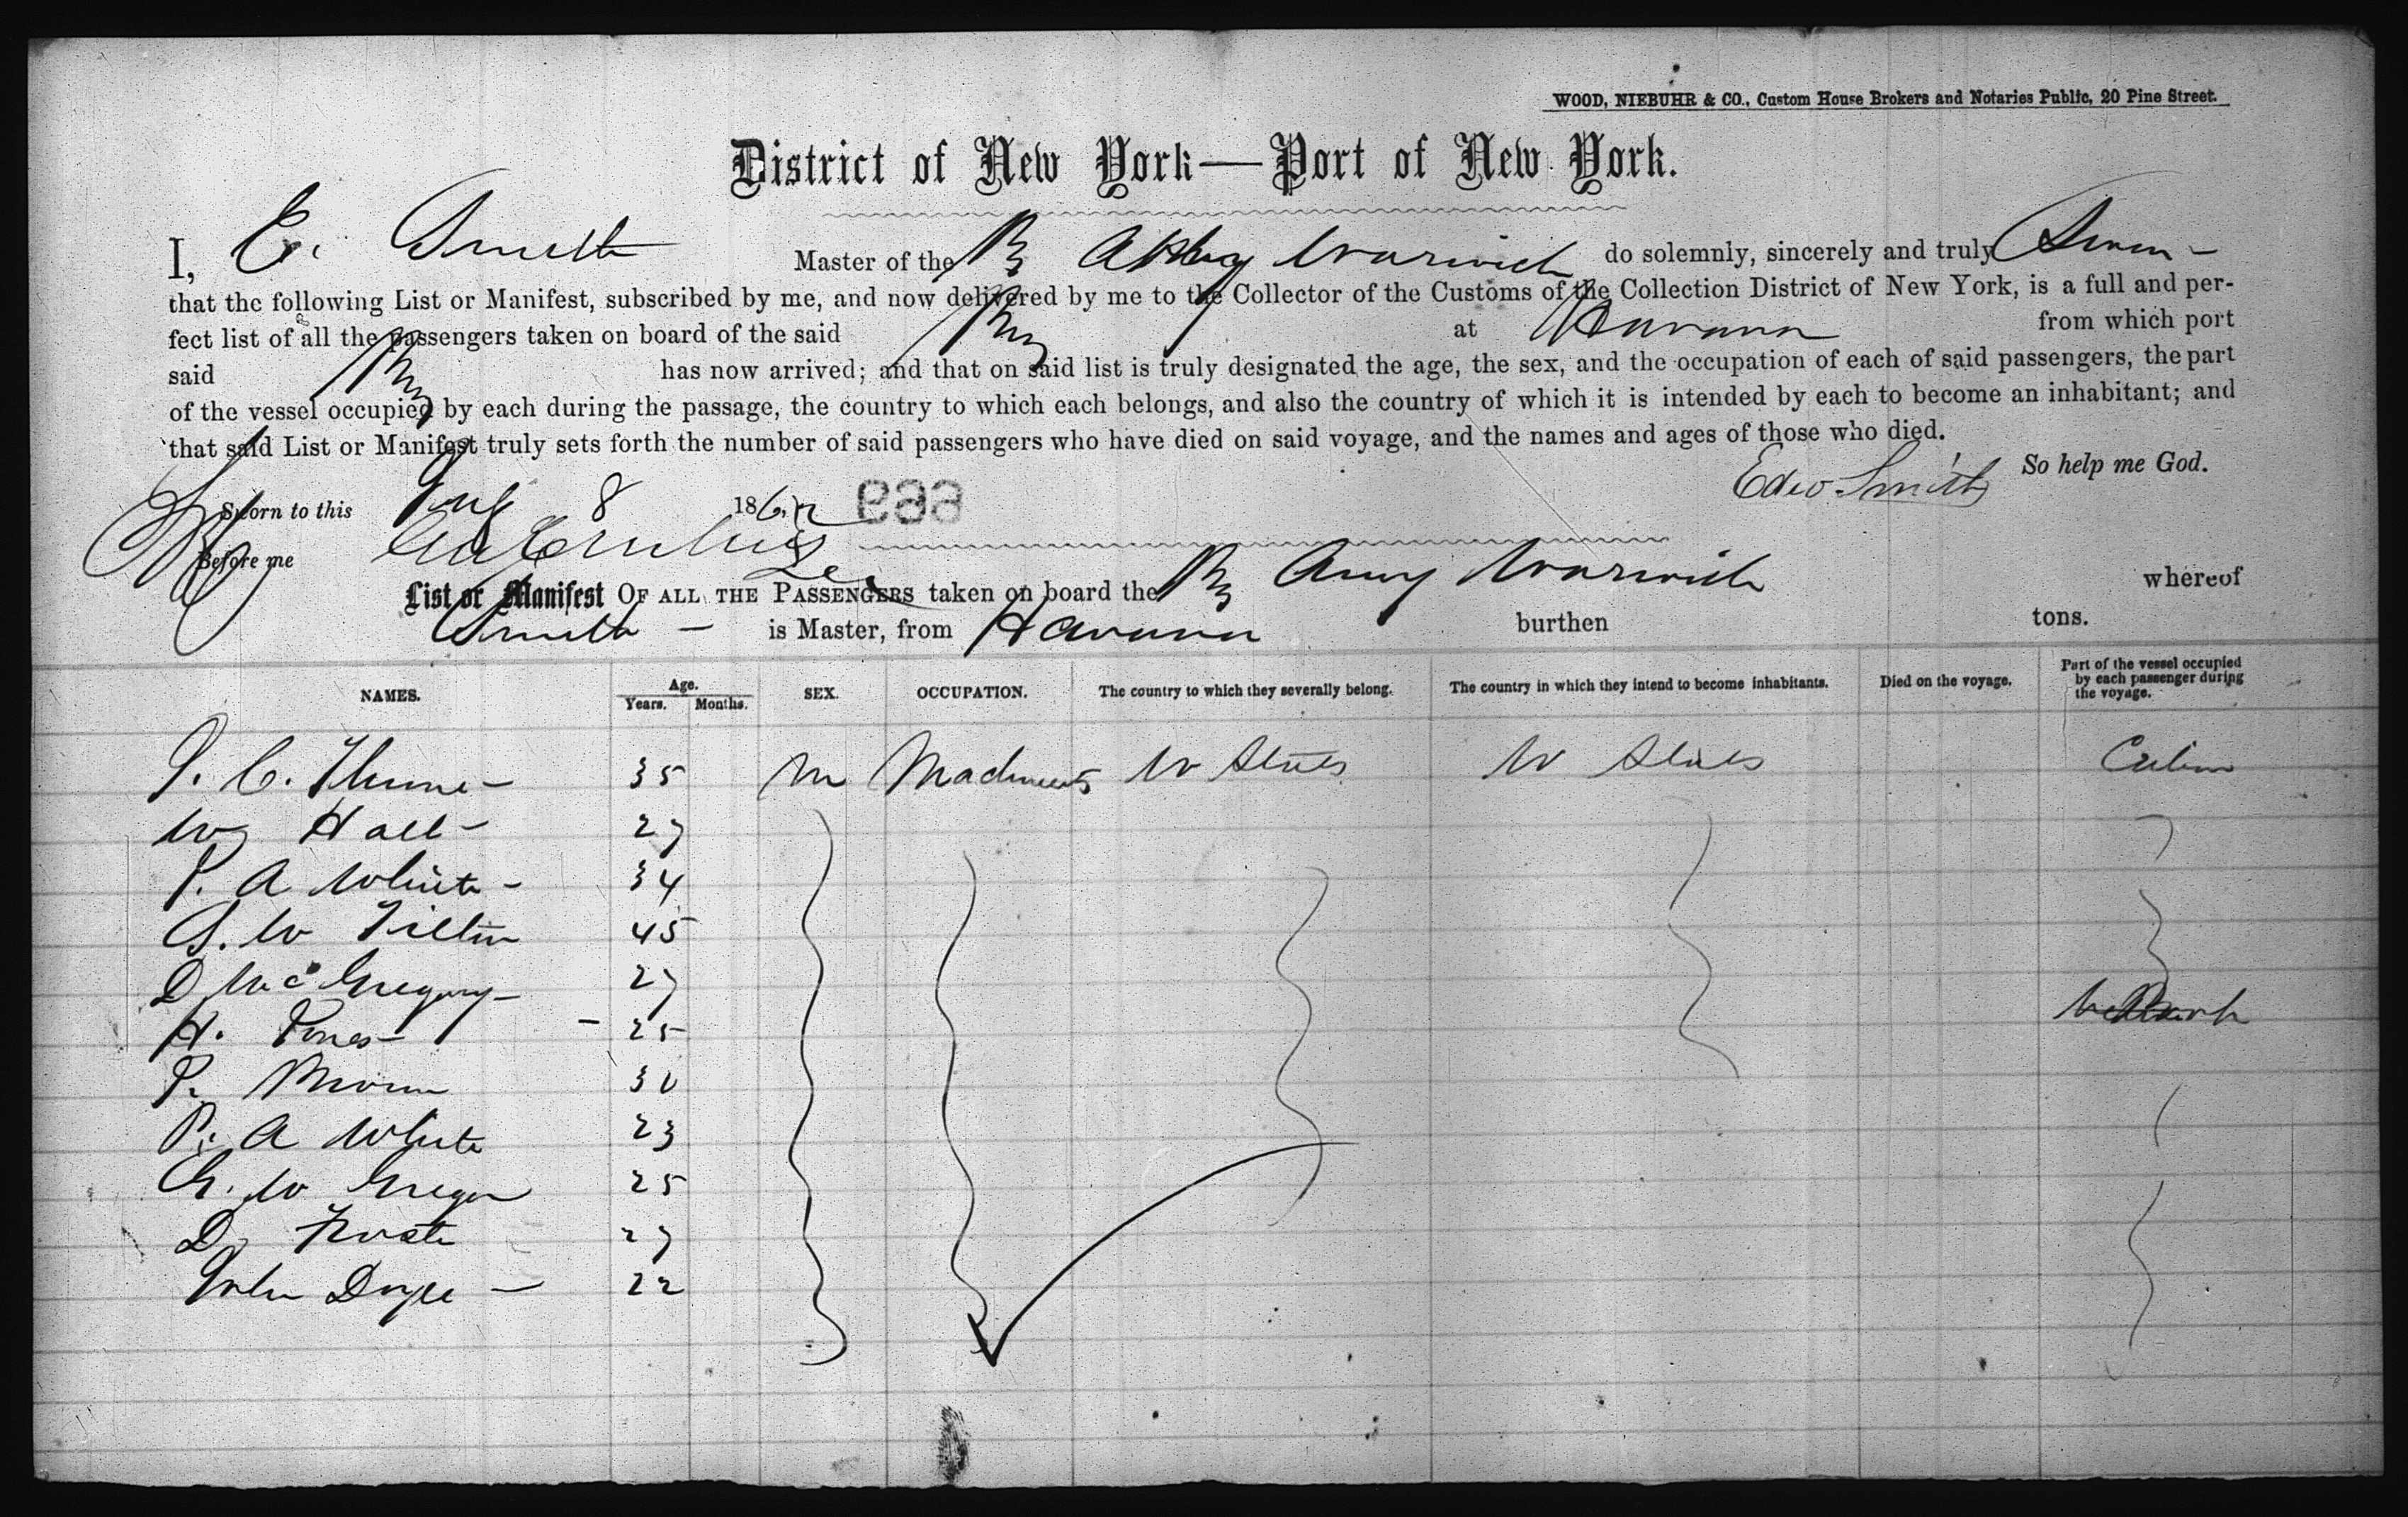 WOOD, NIEBUHR & CO., Custom House Brokers and Notaries Public, 20 Pine Street.
District of New York—Port of New York.
I, E. Smith Master of the Br Warwick do solemnly, sincerely and truly Swear
that the following List or Manifest, subscribed by me, and now delivered by me to the Collector of the Customs of the Collection District of New York, is a full and per-
fect list of all the passengers taken on board of the said Brig at Havana from which port
said Brig has now arrived; and that on said list is truly designated the age, the sex, and the occupation of each of said passengers, the part
of the vessel occupied by each during the passage, the country to which each belongs, and also the country of which it is intended by each to become an inhabitant; and
that said List or Manifest truly sets forth the number of said passengers who have died on said voyage, and the names and ages of those who died.
So help me God.
Edw Smith
Sworn to this 8 186
Before me
List or Manifest OF ALL THE PASSENGERS taken on board the Br Amy Warwick whereof
Smith — is Master, from Havana burthen tons.
NAMES. Age. Years. Months. SEX. OCCUPATION. The country to which they severally belong. The country in which they intend to become inhabitants. Died on the voyage. Part of the vessel occupied by each passenger during the voyage.
35 M Machinests U States U States Cabin
Wm Hall - 27
P. A White - 34
G. W Tilton 45
D McGregory - 27
H. Jones - 25
P. Brown 30
P. A White 23
G. W Gregor 25
D. Frost 27
John Doyle - 22